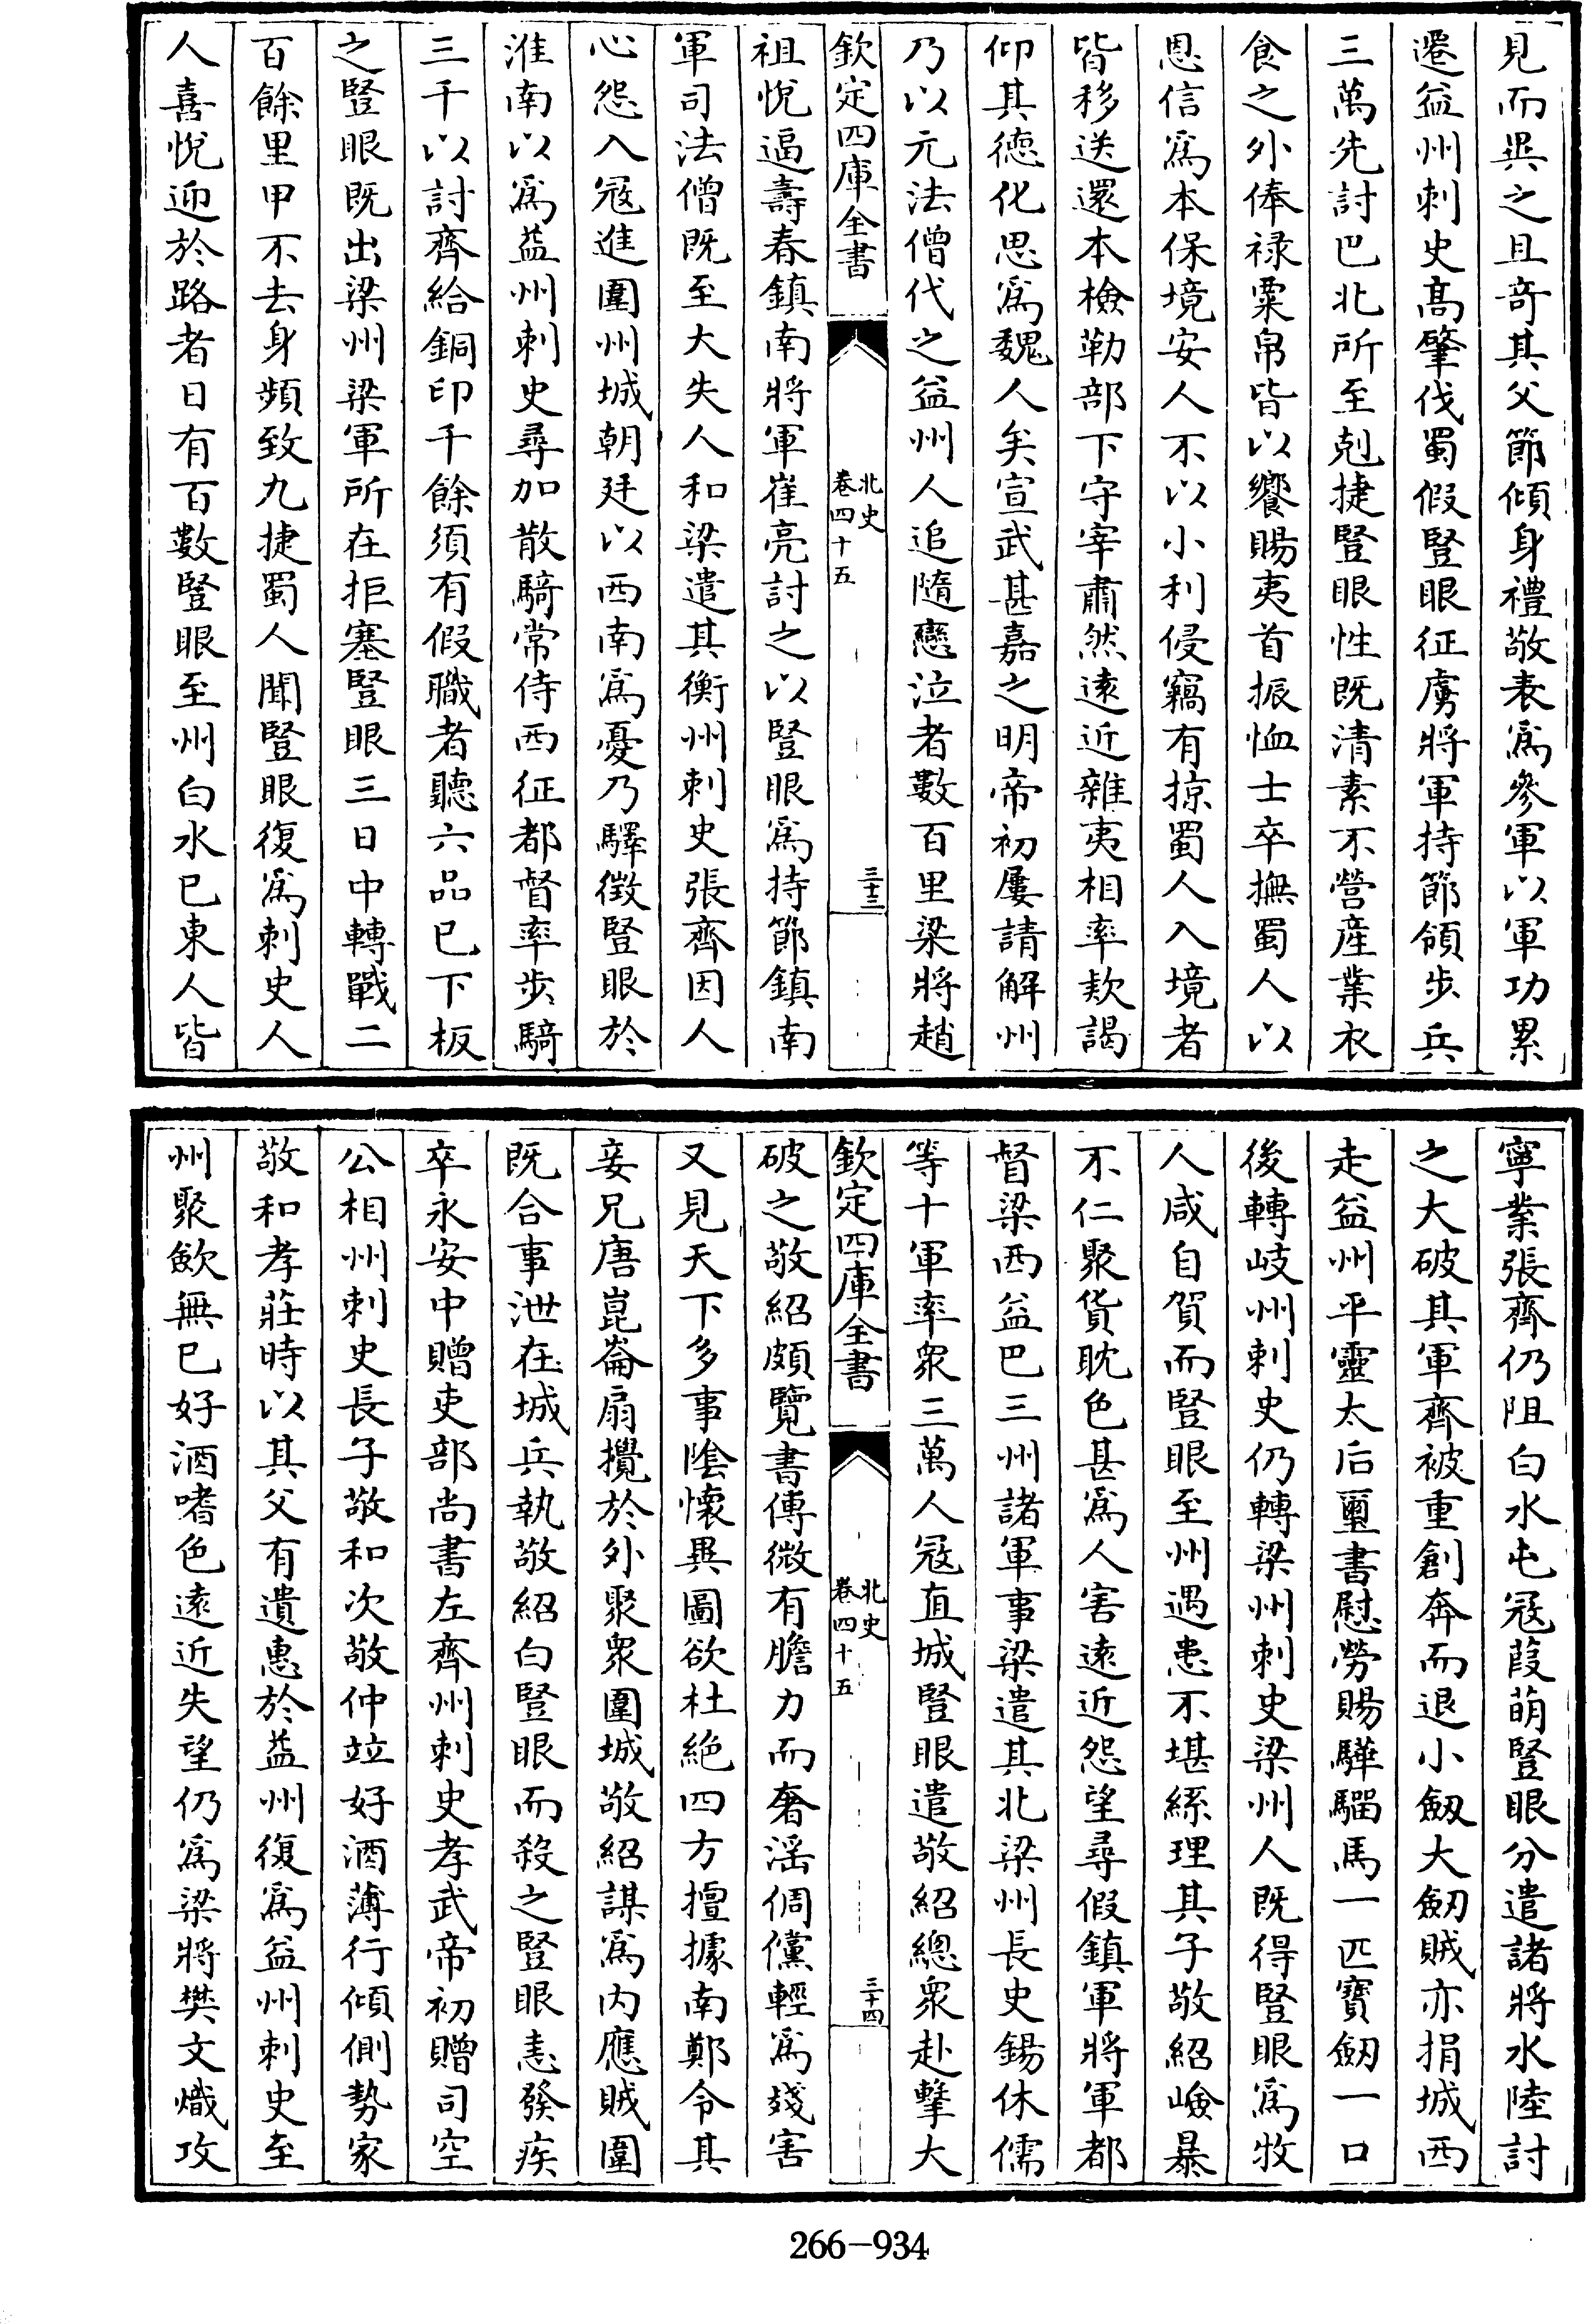 見而異之且奇其父節傾身禮敬表爲參軍以軍功累
遷益州刺史髙肇伐蜀假豎眼征虜將軍持節領步兵
三萬先討巴北所至剋捷豎眼性既清素不營産業衣
食之外俸禄粟帛皆以饗賜夷首振恤士卒撫蜀人以
恩信爲本保境安人不以小利侵竊有掠蜀人入境者
皆移送還本檢勒部下守宰肅然逺近雜夷相率欵謁
仰其德化思爲魏人矣宣武甚嘉之明帝初屢請解州
乃以元法僧代之益州人追隨戀泣者數百里梁將趙
欽定四庫全書
北史
卷四十五
三十三
祖悦逼壽春鎮南將軍崔亮討之以豎眼爲持節鎮南
軍司法僧既至大失人和梁遣其衡州刺史張齊因人
心怨入冦進圍州城朝廷以西南爲憂乃驛徴豎眼於
淮南以爲益州刺史尋加散騎常侍西征都督率步騎
三千以討齊給銅印千餘須有假職者聽六品已下板
之豎眼既出梁州梁軍所在拒塞豎眼三日中轉戰二
百餘里甲不去身頻致九捷蜀人聞豎眼復爲刺史人
人喜悦迎於路者日有百數豎眼至州白水已東人皆
寧業張齊仍阻白水屯冦葭萌豎眼分遣諸將水陸討
之大破其軍齊被重創奔而退小劔大劔賊亦捐城西
走益州平靈太后璽書慰勞賜驊騮馬一匹寳劔一口
後轉岐州刺史仍轉梁州刺史梁州人既得豎眼爲牧
人咸自賀而豎眼至州遇患不堪綜理其子敬紹嶮暴
不仁聚貨耽色甚爲人害逺近怨望尋假鎮軍將軍都
督梁西益巴三州諸軍事梁遣其北梁州長史錫休儒
等十軍率衆三萬人冦直城豎眼遣敬紹總衆赴擊大
欽定四庫全書
北史
卷四十五
三十四
破之敬紹頗覽書傳微有膽力而奢淫倜儻輕爲殘害
又見天下多事隂懷異圖欲杜絶四方擅據南鄭令其
妾兄唐崑崙扇攪於外聚衆圍城敬紹謀爲内應賊圍
既合事泄在城兵執敬紹白豎眼而殺之豎眼恚發疾
卒永安中贈吏部尚書左齊州刺史孝武帝初贈司空
公相州刺史長子敬和次敬仲竝好酒薄行傾側勢家
敬和孝莊時以其父有遺惠於益州復爲益州刺史至
州聚歛無已好酒嗜色逺近失望仍爲梁將樊文熾攻
266-934